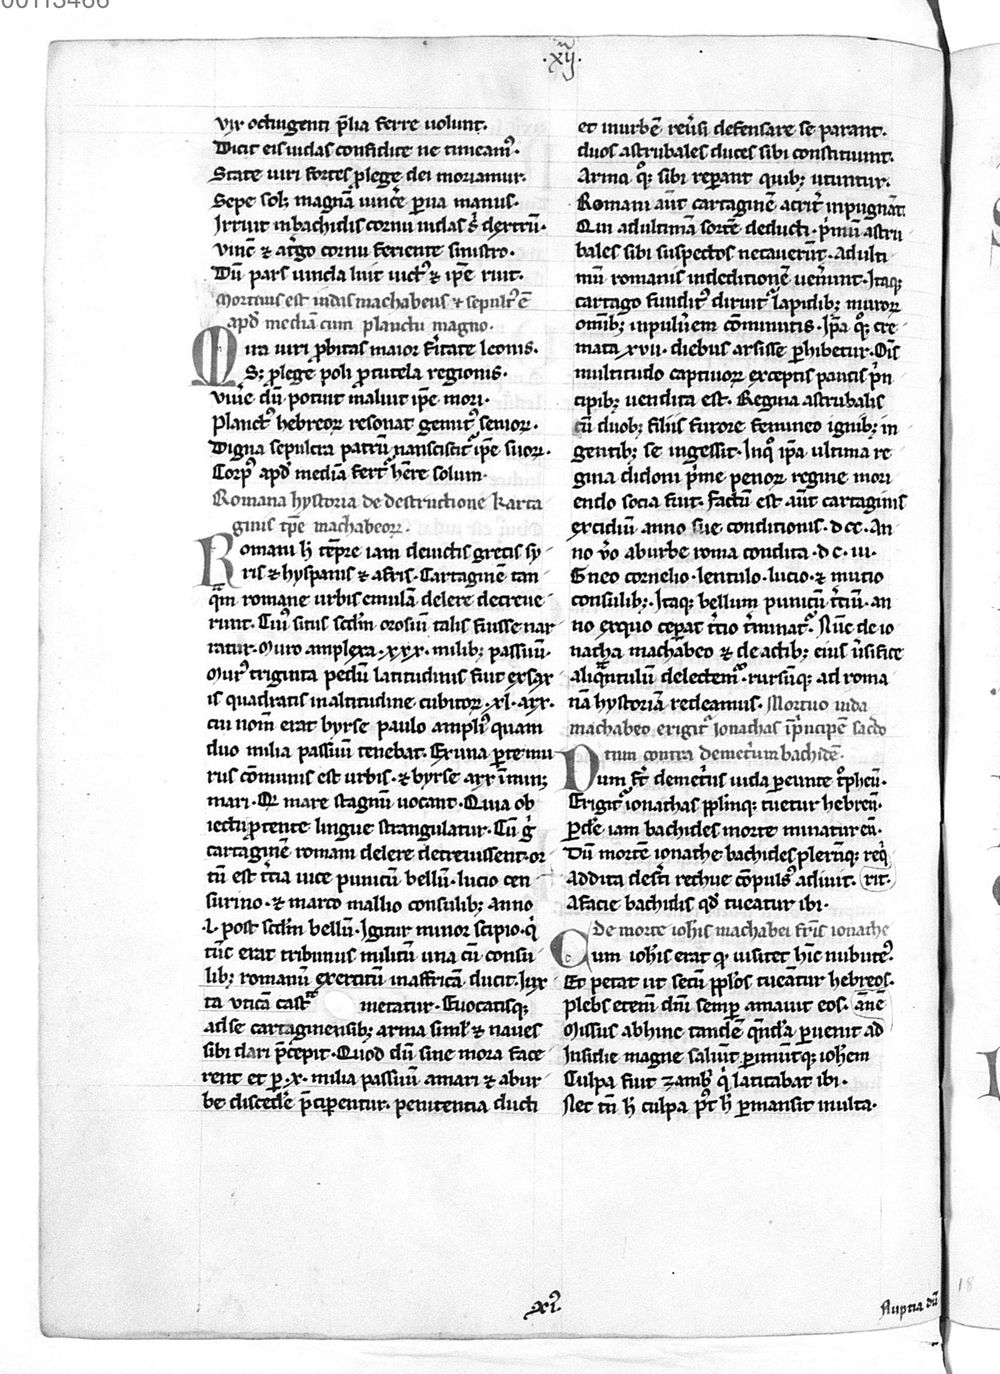 00113466
·xij·
vix octingenti p̄lia ferre uolunt.
Dicit eis iudas confidite ne timeamꝰ·
State uiri fortes ꝓ lege dei moriamur.
Sepe solꝫ magnā uincēr parua manus·
Irruit in bachidis cornu iudas sꝫ dextrū·
vincē ⁊ at̄go cornu feriente sinistro·
Dū pars uincla luit uictꝰ ⁊ ip̄e ruit.
Mortuus est iudas machabeus ⁊ sepultꝰ ē
apđ mediā cum planctu magno.
Mira uiri ꝓbitas maior feritate leonis.
Sꝫ ꝓ lege poli ꝓ tutela regionis.
viuē dū potuit maluit ip̄e mori·
Planctꝰ hebreoꝝ resonat gemitꝰ senioꝝ·
Digna sepulcra patrū nanciscitᷣ ip̄e suoꝝ·
Corpꝰ apđ mediā fertᷣ hēre solum·
Romana hystoria de destructione karta
ginis tp̄e machabeoꝝ·
Romani h̄ tēpre iam deuictis grecis sy
ris ⁊ hyspanis ⁊ afris· Cartaginē tan
qm̄ romane urbis emulā delere decreue
runt· Cuiꝰ situs scd̄m orosium talis fuisse nar
ratur· Muro amplexa·xxx· milibꝫ passuū·
Murꝰ triginta pedū latitudinis fuit ex sax
is quadratis in altitudine cubitoꝝ·xl·arx·
cui nom̄ erat byrse paulo ampliꝰ quam
duo milia passuū tenebat· Ex una ꝑte mu
rus cōmunis est urbis·⁊ byrse arx īminꝫ
mari· Qđ mare stagnū uocant· Quia ob
iectu ꝓtente lingue strangulatur· Cū gͥ
cartaginē romani delere decreuissent·or
tū est t̄cia uice punicū bellū·lucio cen
surino·⁊ marco mallio consulibꝫ anno
·l· post scd̄m bellū· Igitur minor scipio·qͥ
tūc erat tribunus militū una cū consu
libꝫ romanū exercitū in affricā ducit· Iux
ta vticā castͣ metatur· Euocatisqꝫ
ad se cartaginensibꝫ arma simlͥ ⁊ naues
sibi dari p̄cepit· Quod dū sine mora face
rent et ꝑ·x· milia passuū a mari ⁊ ab ur
be discedēr p̄ciperentur· penitentia ducti
et in urbē reūsi defensare se parant.
duos astrubales duces sibi constituunt.
Arma qͦꝫ sibi repar̄ant quibꝫ utuntur.
Romani aūt cartaginē acritᷣ inpugnāt.
Qui ad ultimam sortē deducti· p̄mū astru
bales sibi suspectos necauerūt· ad ulti
mū romanis in deditionē uen̄iunt· Itaqꝫ
cartago funditꝰ diruitᷣ lapidibꝫ muroꝝ
omībꝫ in puluerem cōminutis· Ip̄a qͦꝫ cre
mata xvii· diebus arsisse ꝑhibetur· Oīs
multitudo captiuoꝝ exceptis paucis p̄n
cipibꝫ uendita est· Regina astrubalis
cū duobꝫ filiis furore femineo ignibꝫ in
gentibꝫ se ingessit· Inqͦ ip̄a ultima re
gina didoni p̄me penoꝝ regine mori
endo socia fuit· factū est aūt cartaginis
excidiū anno sue conditionis·d cc· An
no ūo ab urbe roma condita·d c·iii·
Gneo cornelio·lentulo·lucio·⁊ mucio
consulibꝫ· Itaqꝫ bellum punicū t̄ciū·an
no ex quo ceperat t̄cio t̄minatᷣ· Nūc de io
natha machabeo ⁊ de actibꝫ eius ūsifice
aliqͣntulū delectemꝰ·rursūqꝫ ad roma
nā hystoriā redeamus· Mortuo iuda
machabeo erigitᷣ ionathas ī p̄ncipē sacdo
tum contra demetrium bachidē·
Dum fꝫ demet̄ius iuda ꝑeunte t̓pheū·
Erigitᷣ ionathas pp̄linqꝫ tuetur hebreū·
ꝑde iam bachides morte minatur eū·
Dū mortē ionathe bachides plerūqꝫ req̄
Addita destͥ rechue cōpulsꝰ adiuit· rit·
A facie bachidis qđ tueatur ibi·
de morte ioh̄is machabei fr̄is ionathe
Cum ioh̄is erat qͥ uisitet hīc nubuteꝰ?
Et petat ut secū pp̄los tueātur hebreos·
Plebs etenī dn̄i semꝑ amauit eos· āne
Missus abhinc tandē qūdā ꝑuenit ad
Insidie magne saliūt ꝑimūtqꝫ ioh̄em
Culpa fuit zambͥ qͥ latitabat ibi·
Nec tn̄ h̄ culpa pt̄ h̄ ꝑmansit inulta·
·xi·
Nuptia dū
18